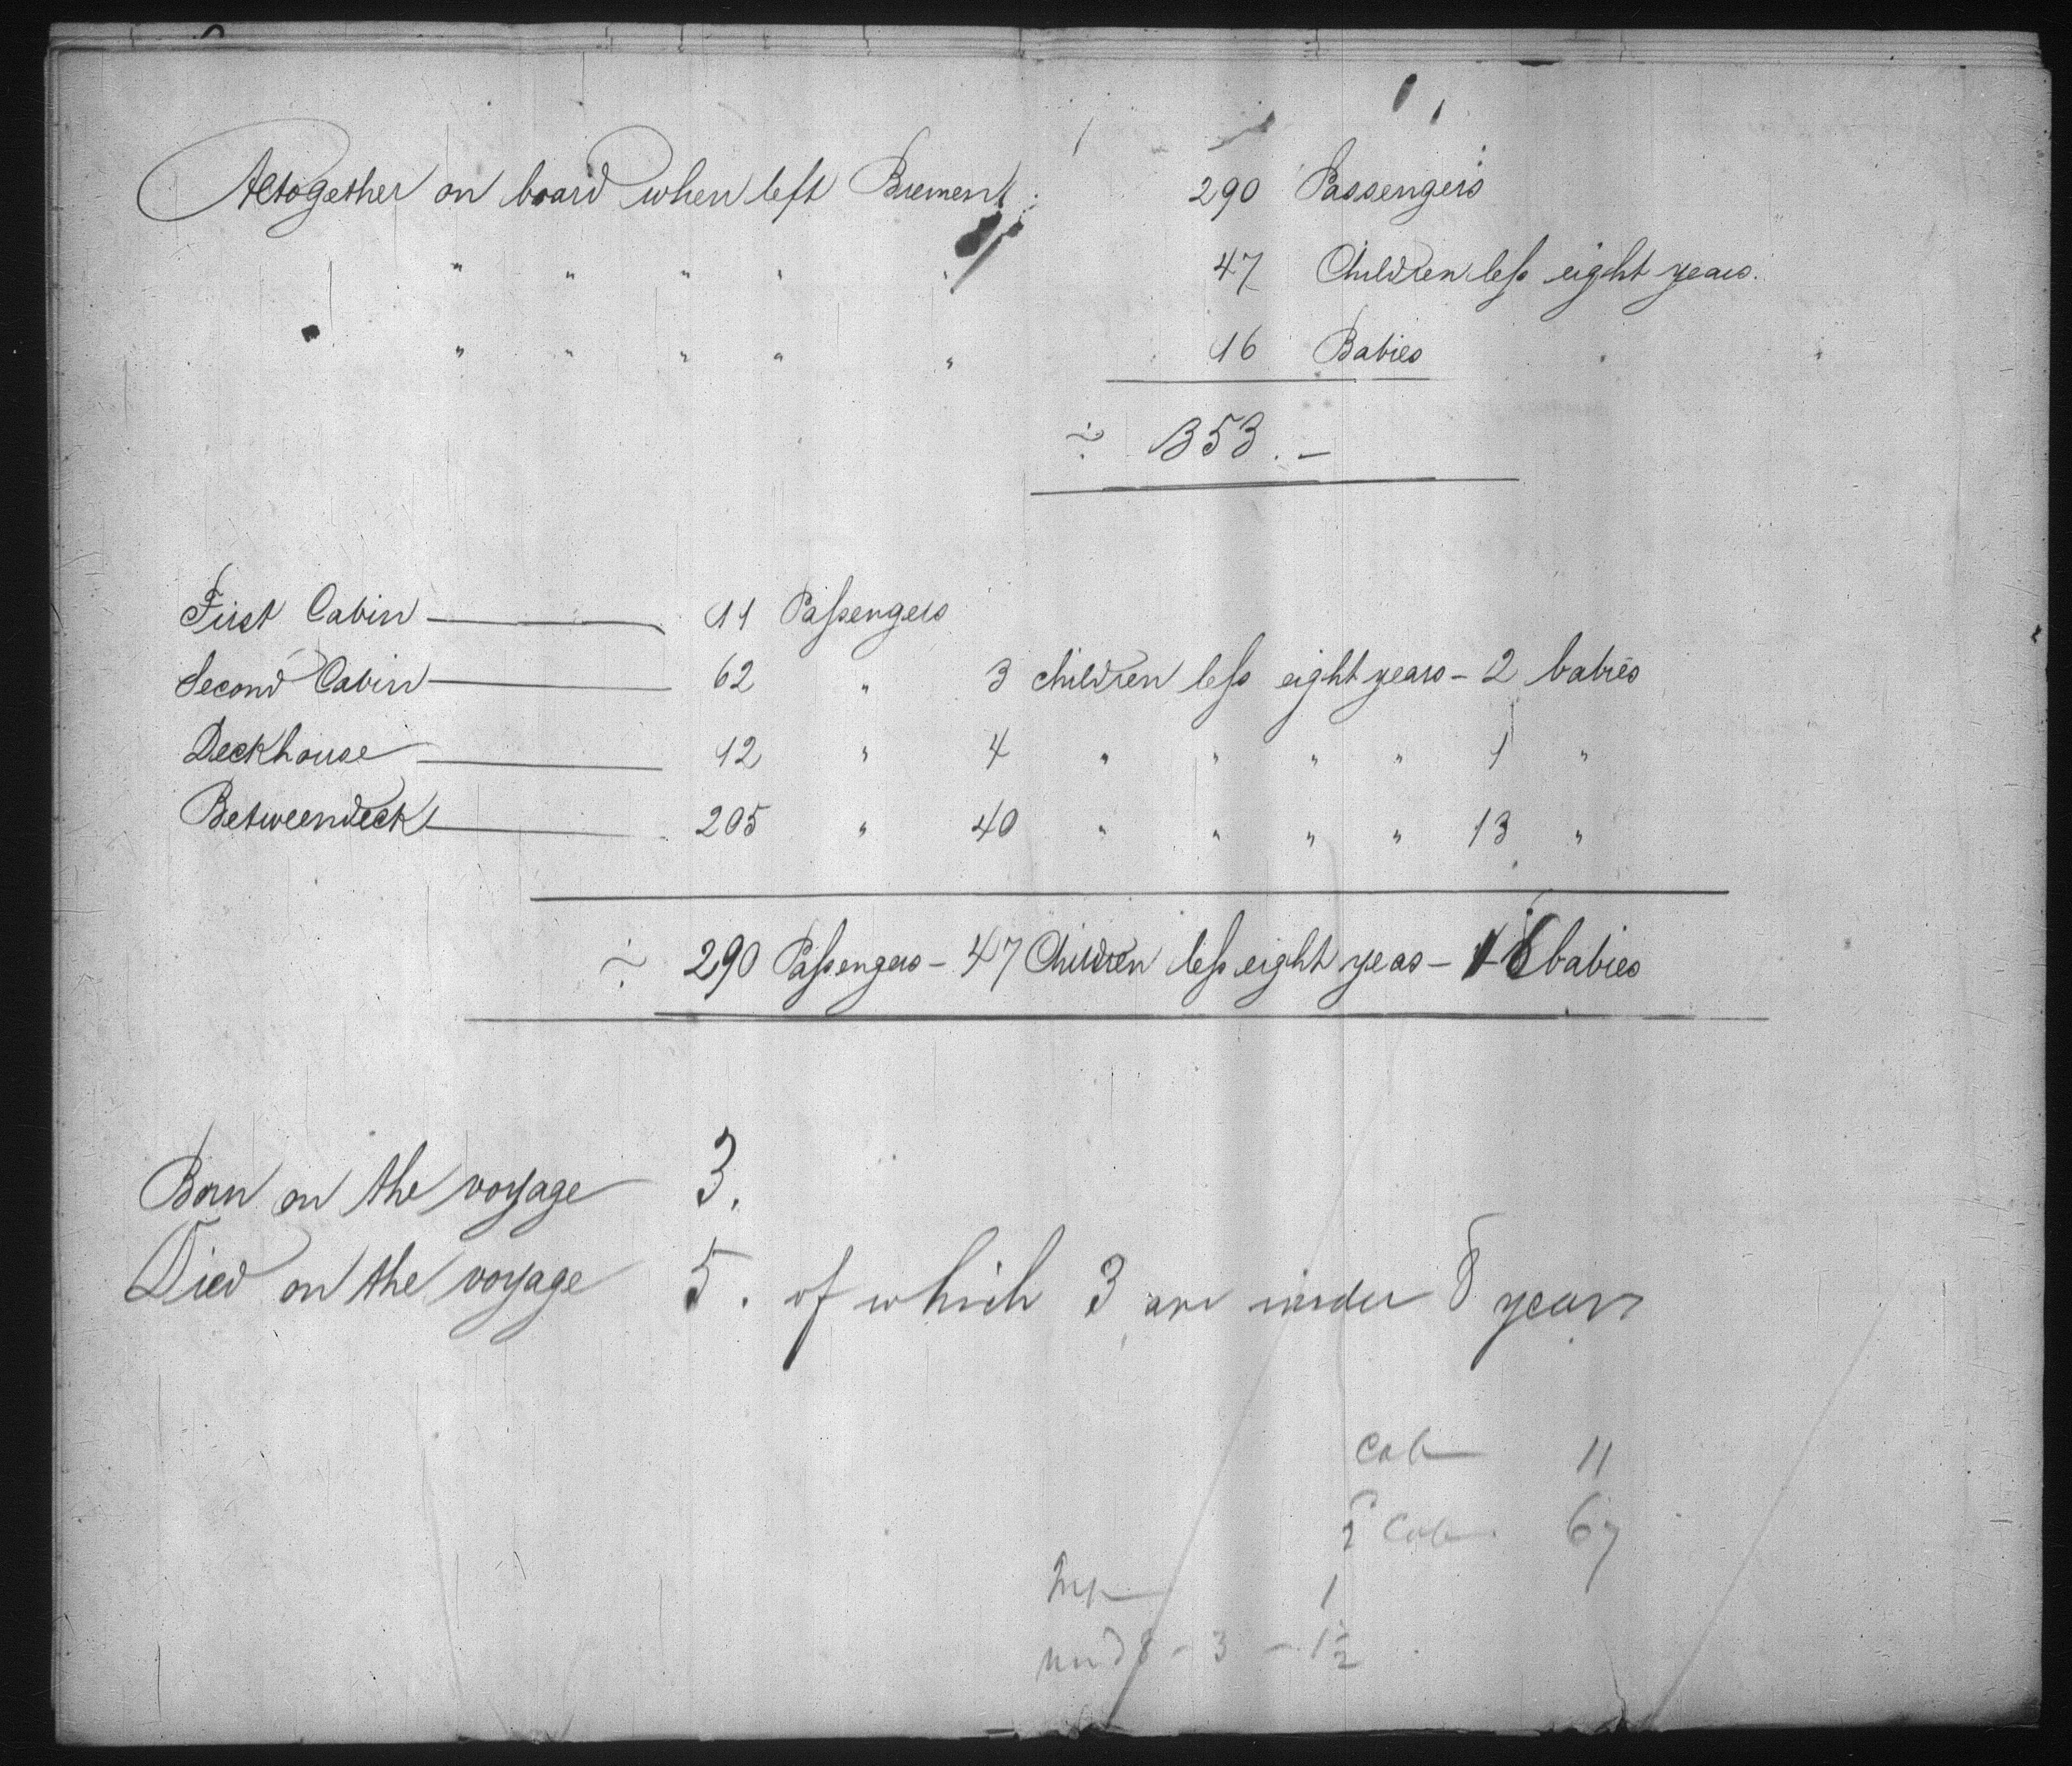 Altogether on board when left Bremen : 290 Passengers
" " " " " 47 Children less eight years.
" " " " " 16 Babies
353. —
First Cabin — 11 Passengers
Second Cabin — 62 " 3 children less eight years — 2 babies
Deckhouse — 12 " 4 " " " " 1 "
Betweendeck — 205 " 40 " " " " 13 "
290 Passengers — 47 Children less eight yeas — 16 babies
Born on the voyage 3.
Died on the voyage 5. of which 3 are under 8 years
Cab 11
2 Cab 67
1
und 8 - 3 - 1½